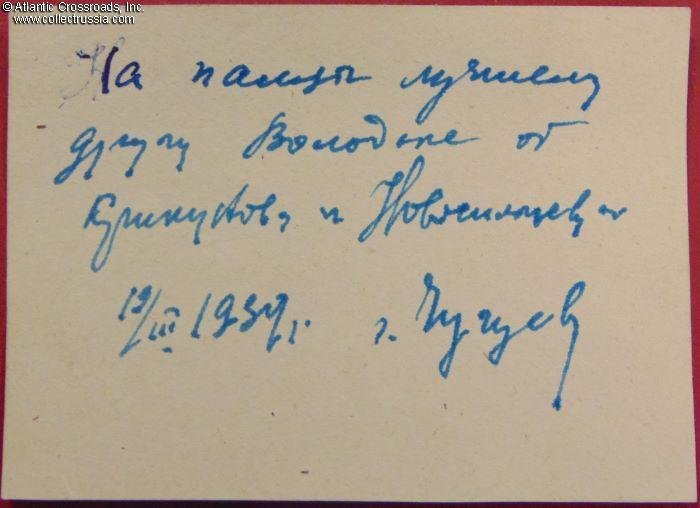 © Atlantic Crossroads, Inc.
www.collectrussia.com
На память лучшему
другу Володьке от
и Новосильцева
19/III 1937 г. г. Чугуев